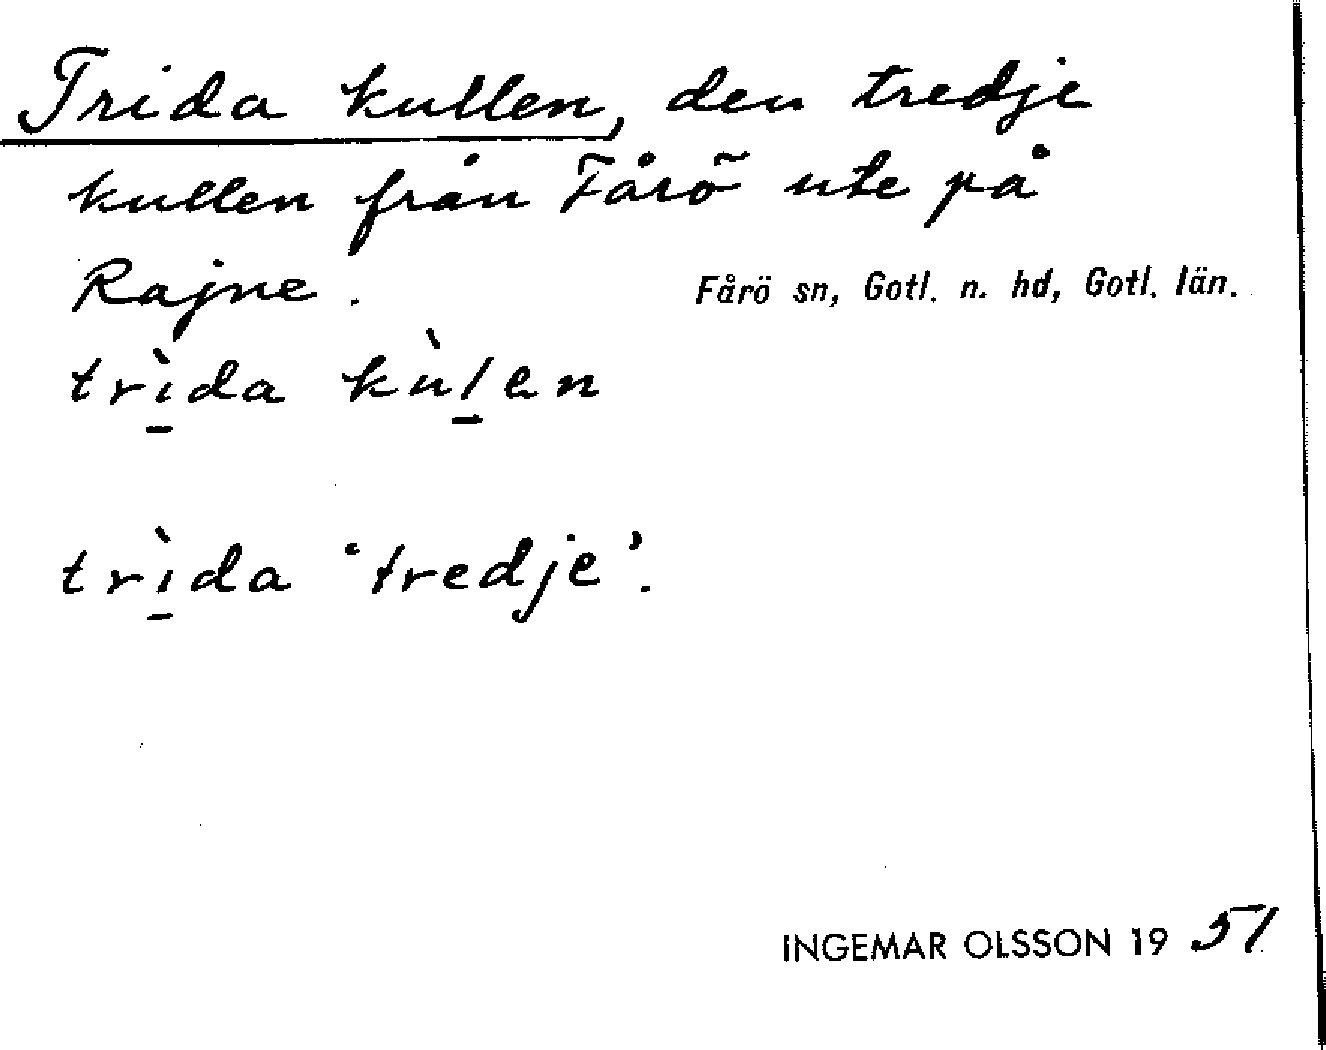 Trida kullen, den tredje
kullen från Fårö ute på
Rajne.
Fårö sn, Gotl. n. hd, Gotl. län.
trì̠da kùl̠en
trì̠da 'tredje'.
INGEMAR OLSSON 1951